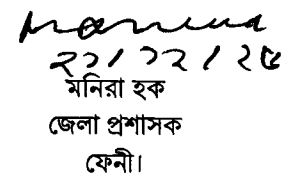 ২১/১২/২৫
মনিরা হক
জেলা প্রশাসক
ফেনী।